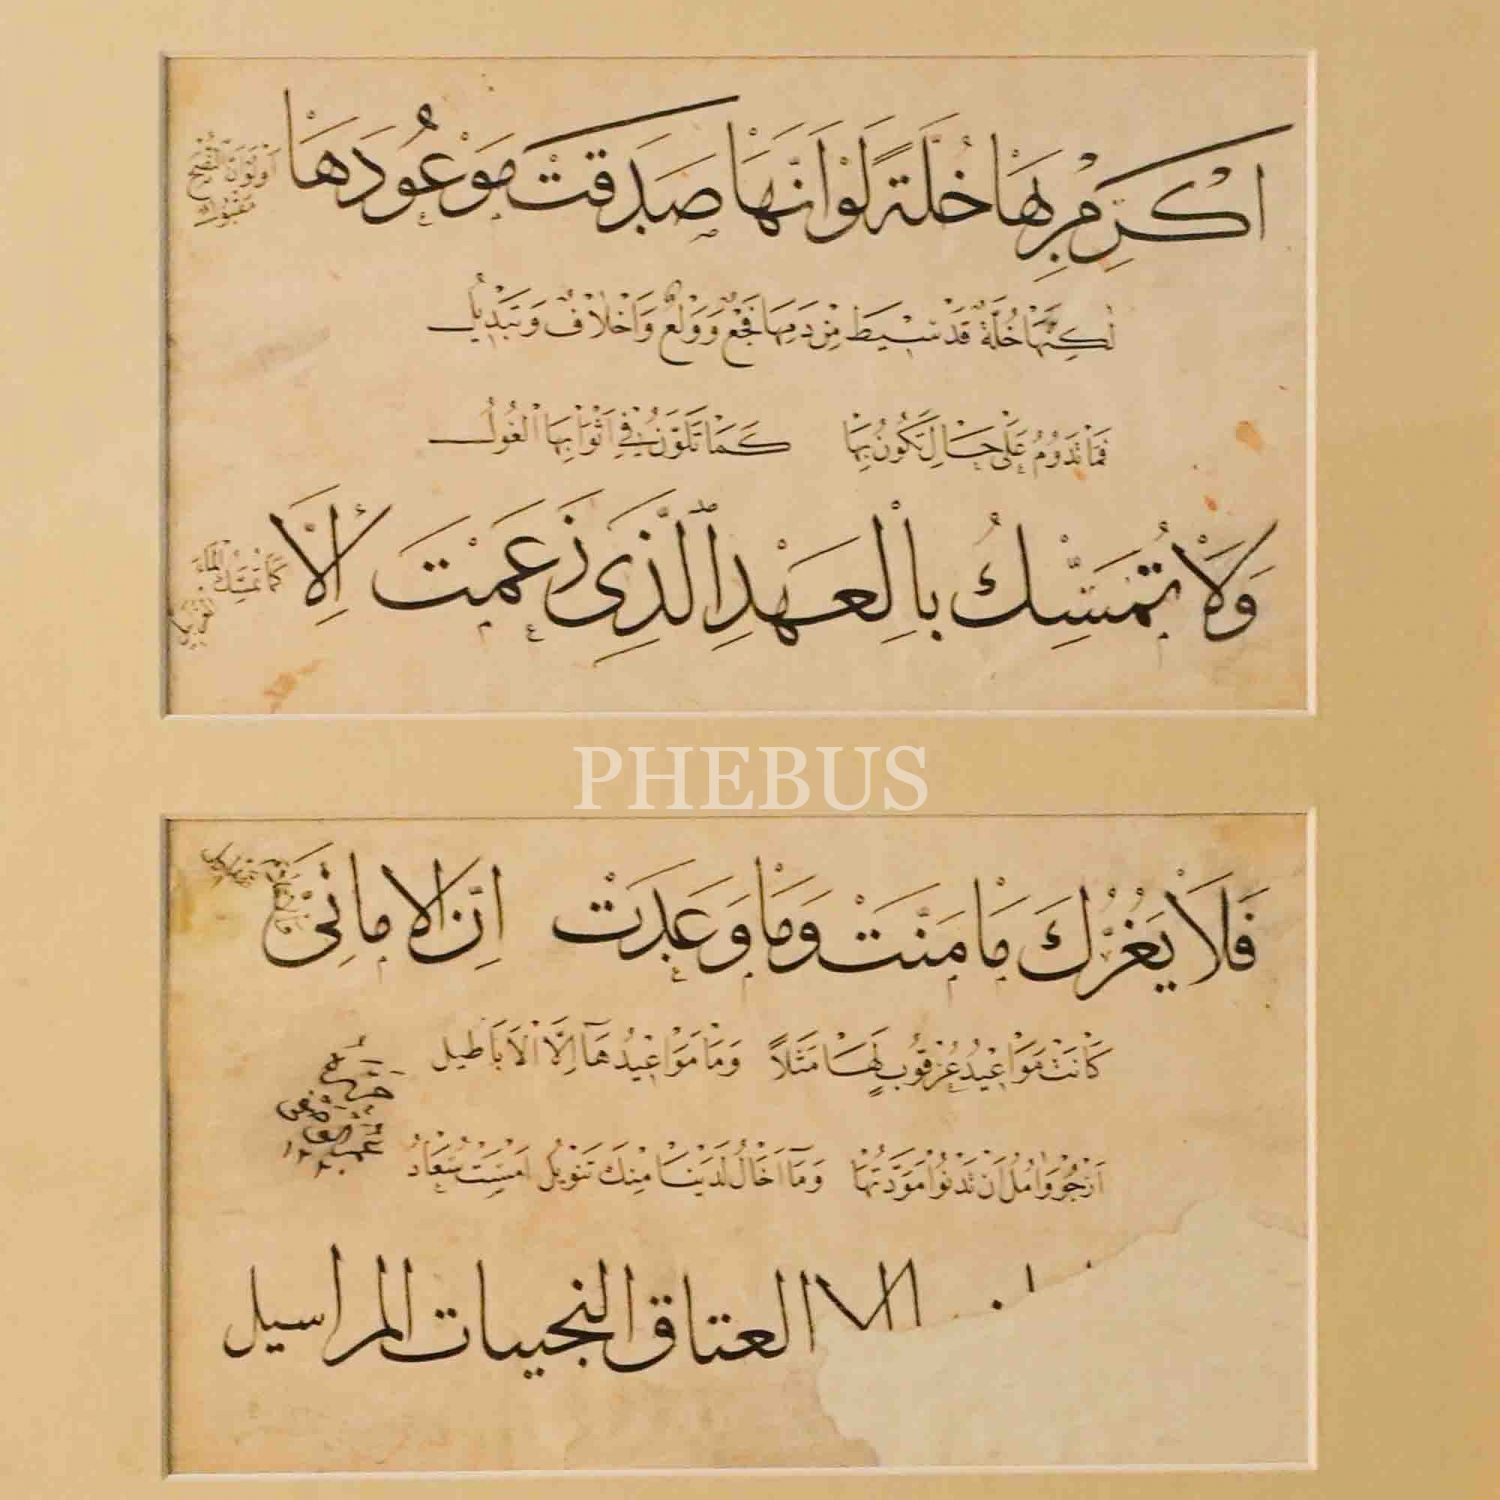 اَكْرِمْ بِهَا خُلَّةً لَوْ اَنَّهَا صَدَقَتْ مَوْعُودَهَا
اَوْ لَوْ اَنَّ النُّصْحَ مَقْبُولُ
لٰكِنَّهَا خُلَّةٌ قَدْ سِيْطَ مِنْ دَمِهَا فَجْعٌ وَوَلْعٌ وَاَخْلَافٌ وَتَبْدِيْلُ
فَمَا تَدُوْمُ عَلٰى حَالٍ تَكُوْنُ بِهَا كَمَا تَلَوَّنُ فِيْ اَثْوَابِهَا الْغُوْلُ
وَلَا تُمَسِّكُ بِالْعَهْدِ الَّذِى زَعَمَتْ اِلَّا
كَمَا تُمْسِكُ الْمَاءَ
PHEBUS
فَلَا يَغُرَّكَ مَا مَنَّتْ وَمَا وَعَدَتْ اِنَّ الْاَمَانِىَّ
كَانَتْ مَوَاعِيْدُ عُرْقُوْبٍ لَهَا مَثَلًا وَمَا مَوَاعِيْدُهَا اِلَّا الْاَبَاطِيْلُ
اَرْجُوْ وَاٰمُلُ اَنْ تَدْنُوْ مَوَدَّتُهَا وَمَا اَخَالُ لَدَيْنَا مِنْكَ تَنْوِيْلُ اَمْسَتْ سُعَادُ
الا العتاق النجيبات المراسيل